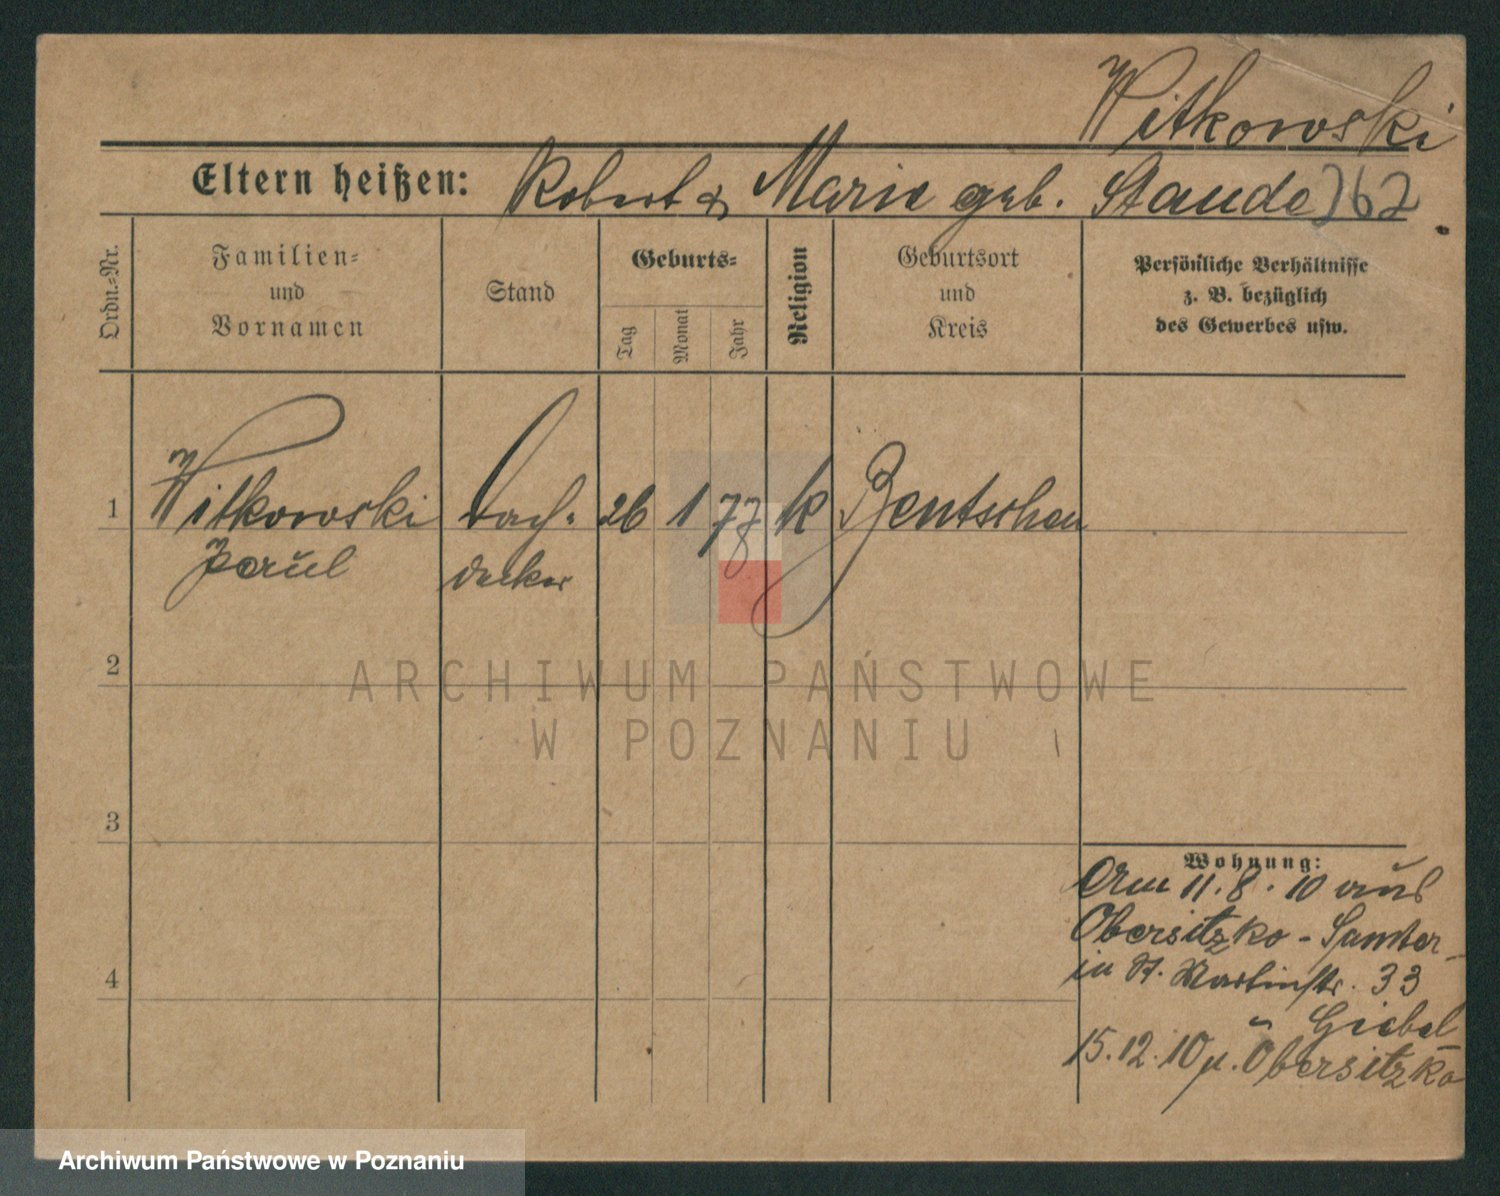 Witkowski
Eltern heißen: Robert & Marie geb. Staude 262
Ordn.-Nr.
Familien-
und
Vornamen
Stand
Geburts-
Tag
Monat
Jahr
Religion
Geburtsort
und
Kreis
Persönliche Verhältnisse
z. B. bezüglich
des Gewerbes usw.
1 Witkowski Dach- 26 1 77 k Bentschen
Paul decker
2
3
4
Wohnung:
Am 11.8.10 aus
Obersitzko - Samter
in St. Martinstr. 33
Giebel
15.12.10 n. Obersitzko
ARCHIWUM PAŃSTWOWE
W POZNANIU
Archiwum Państwowe w Poznaniu